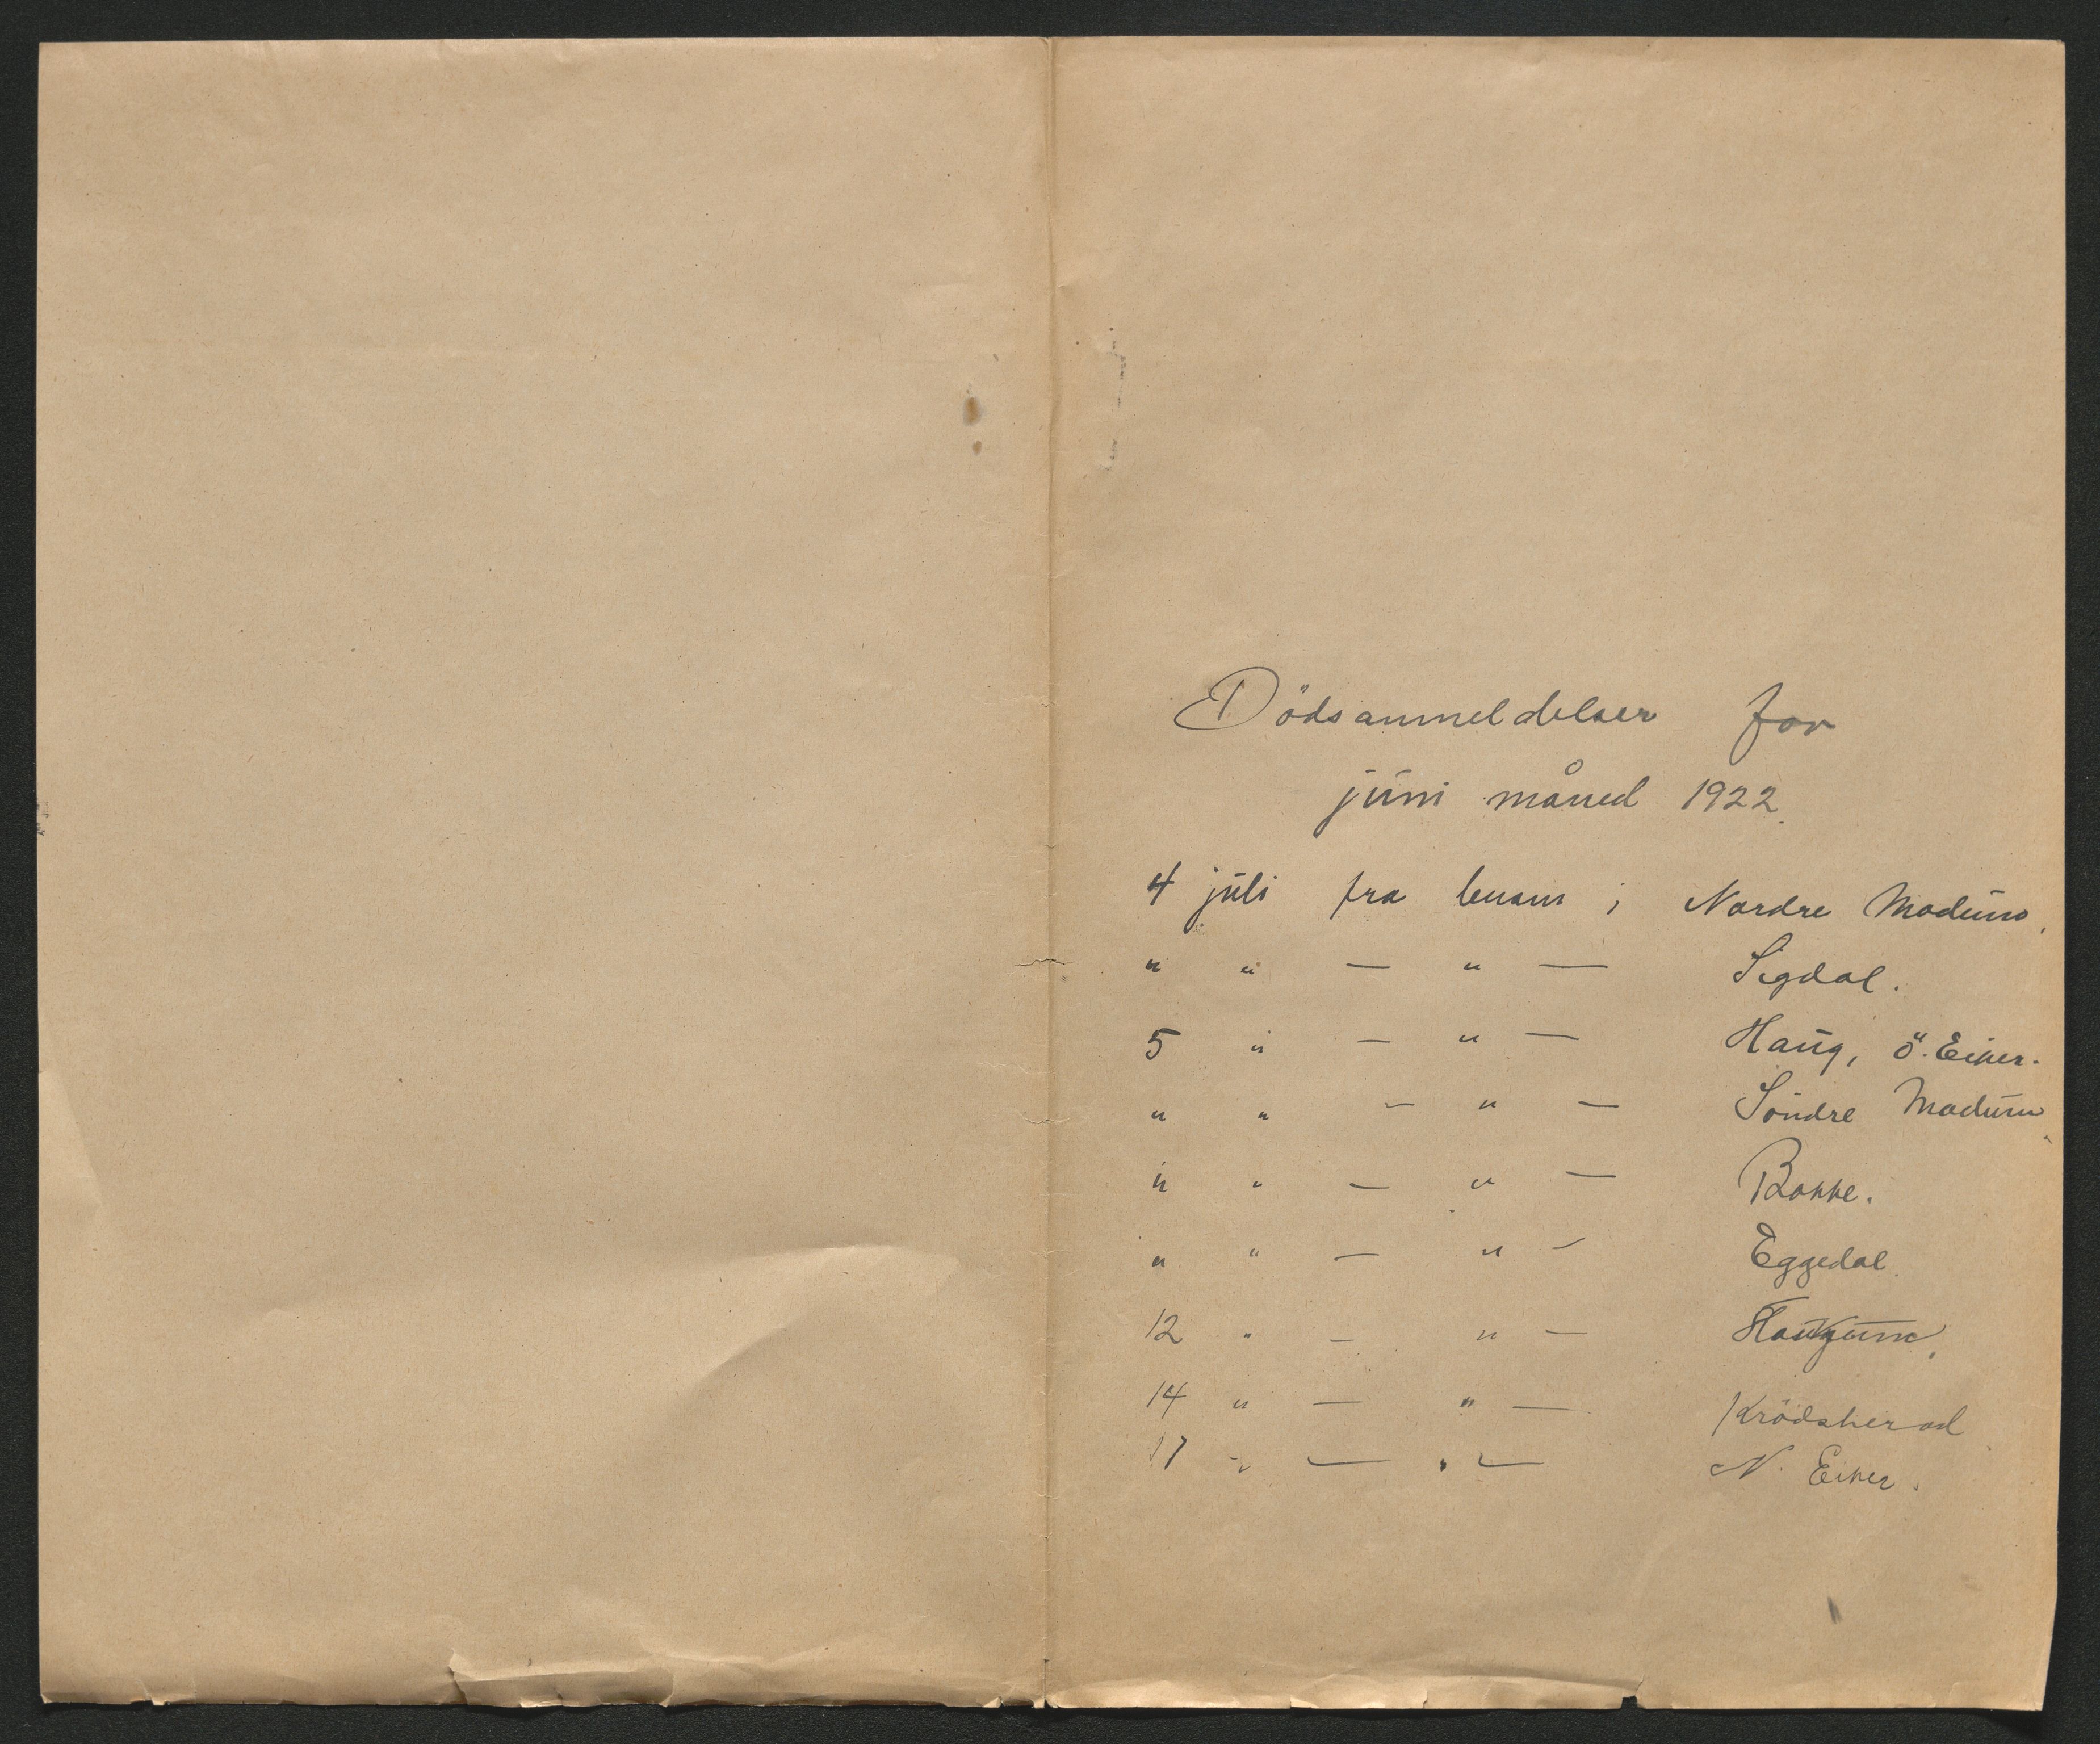 Dödsanmeldelser for
juni måned 1922.
4 juli fra lensm i Nordre Modum.
" " — " — Sigdal.
5 " — " — Haug, ö. Eiker.
" " — " — Söndre Modum.
" " — " — Bakke.
" " — " — Eggedal.
12 " — " —
14 " — " — Krödsherad
17 " — " — N. Eiker.